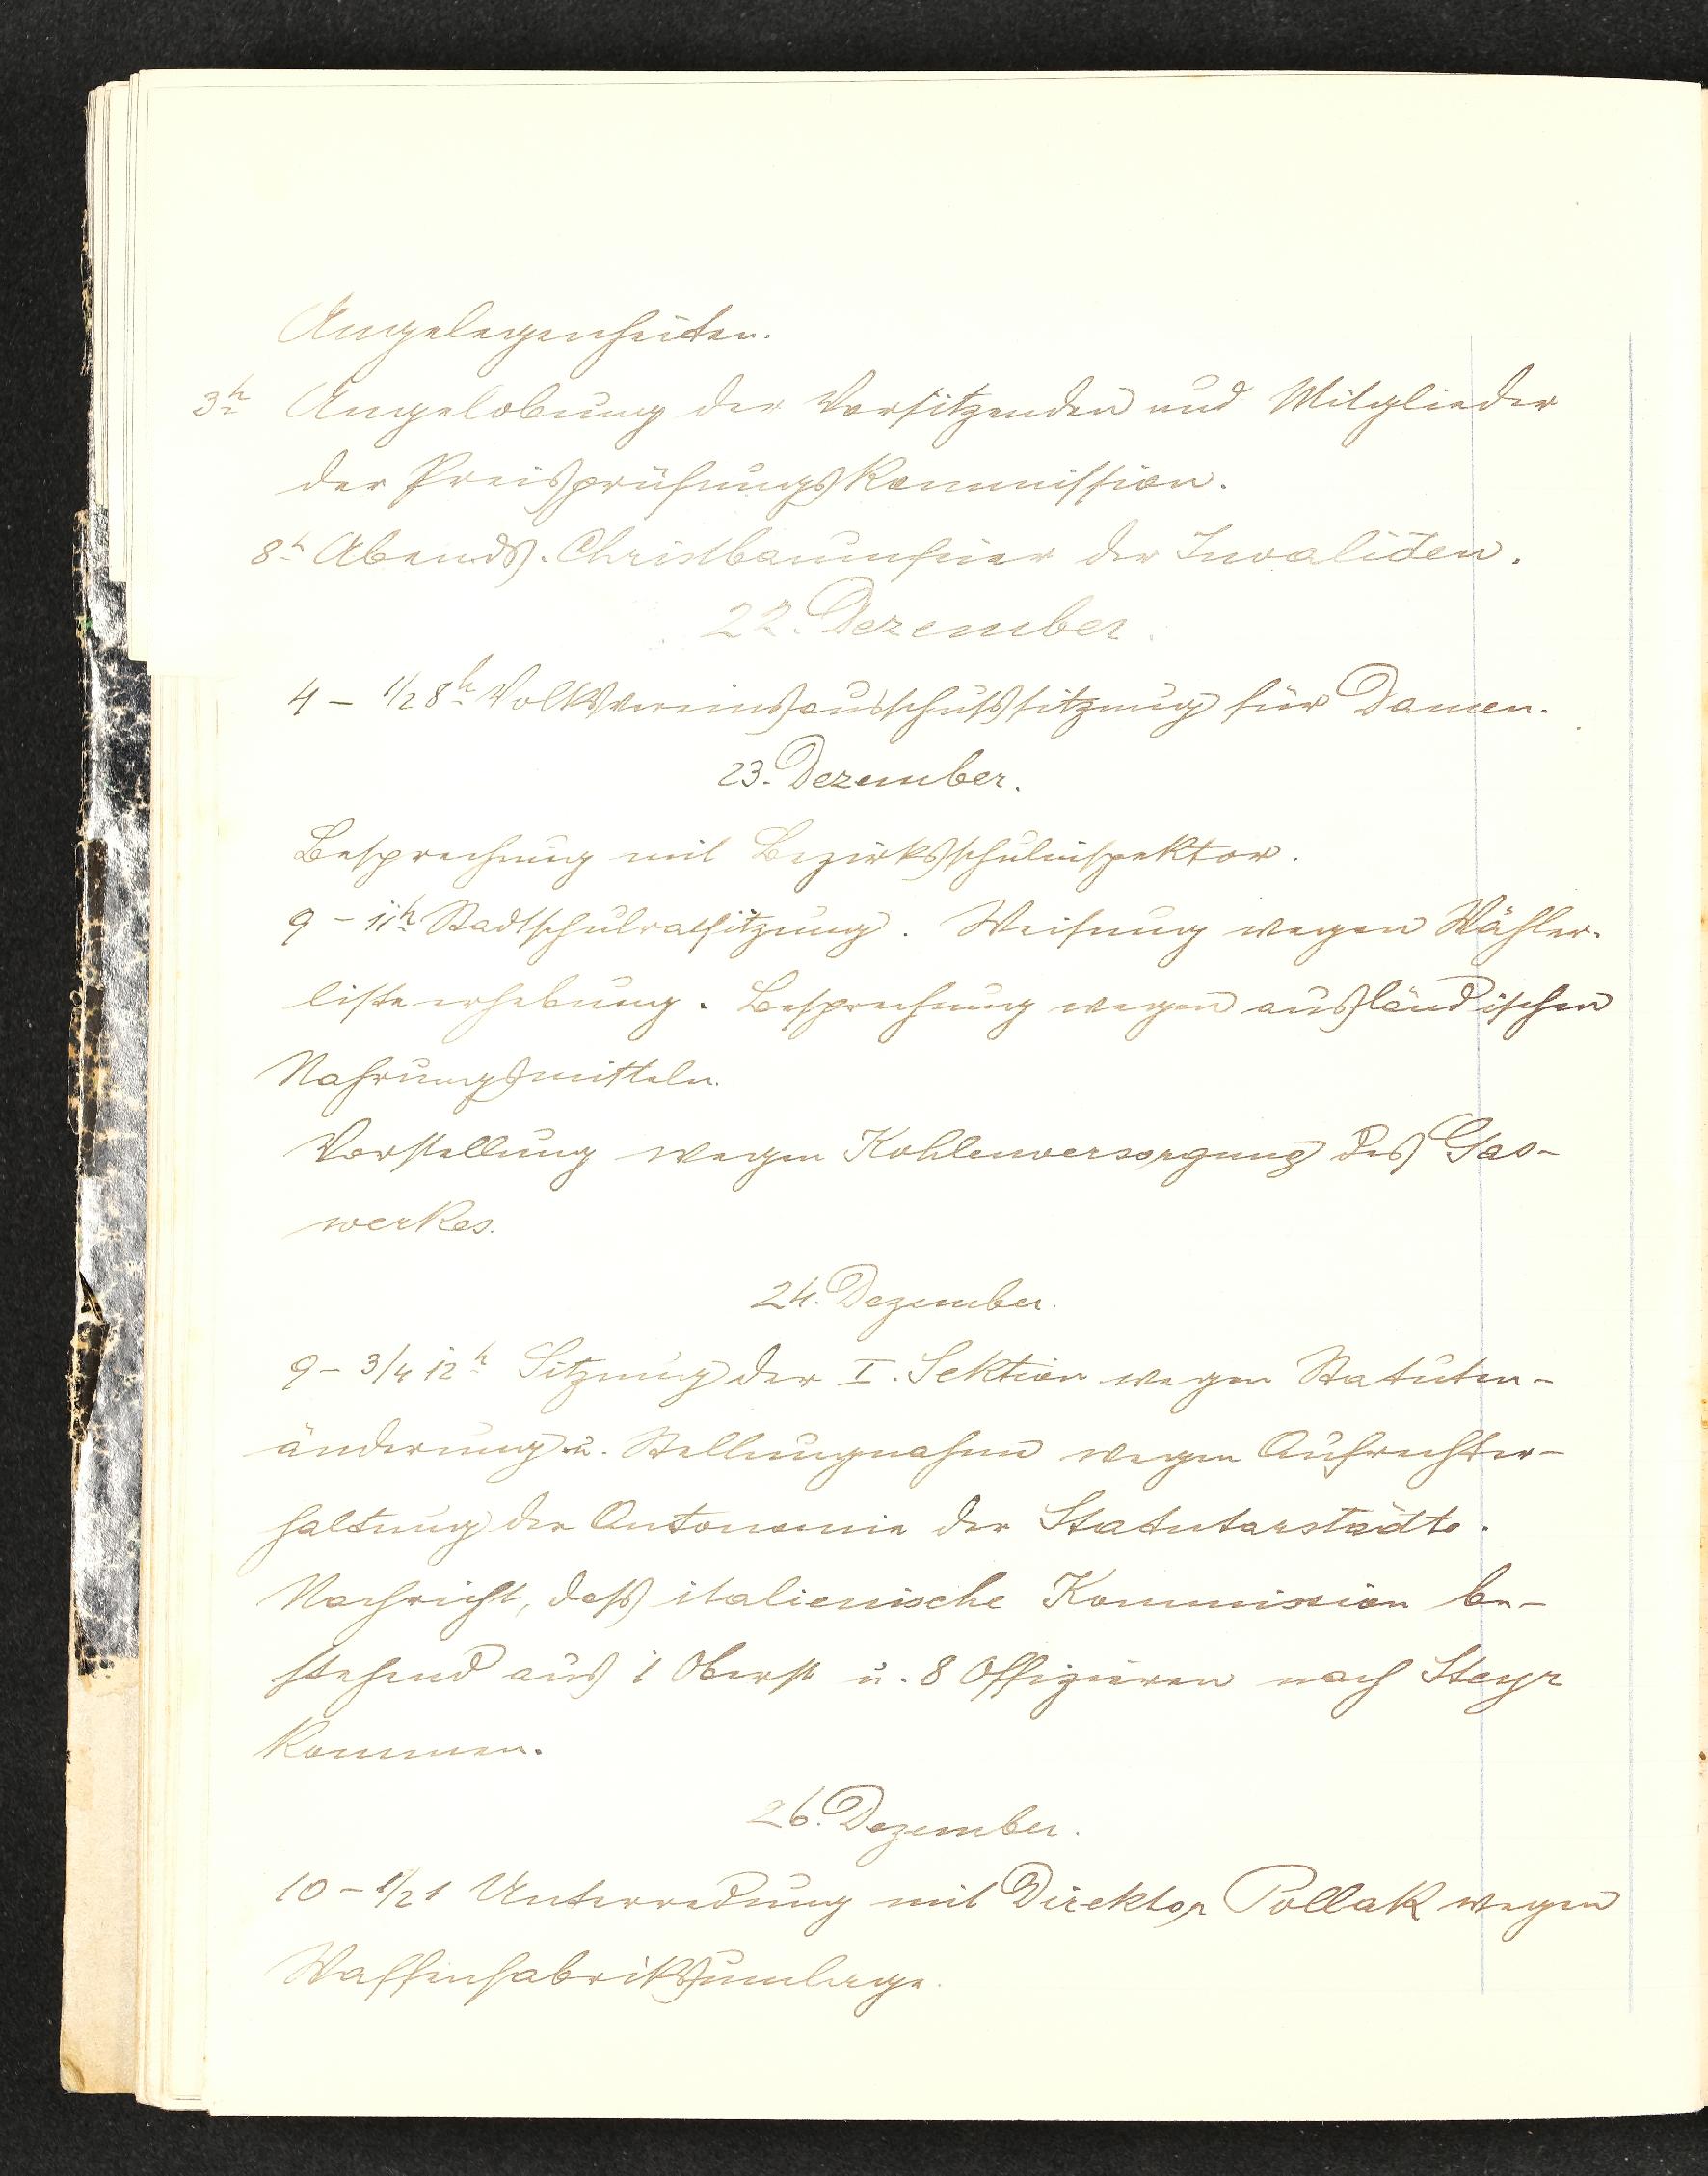 Angelegenheiten.
3h Angelobung der Vorsitzenden und Mitglieder
der Preisprüfungskommission.
8h Abends. Christbaumfeier der Invaliden.
22. Dezember.
4 - 1/2 8h Volksvereinsausschußsitzung für Damen.
23. Dezember.
Besprechung mit Bezirksschulinspektor.
9 - 11h Stadtschulratsitzung. Weisung wegen Wähler-
listeerhebung. Besprechung wegen ausländischen
Nahrungsmitteln.
Vorstellung wegen Kohlenversorgung des Gas-
werkes.
24. Dezember.
9 - 3/4 12h Sitzung der I. Sektion wegen Statuten-
änderung u. Stellungnahme wegen Aufrechter-
haltung der Autonomie der Statutarstädte.
Nachricht, daß italienische Kommission be-
stehend aus 1 Oberst u. 8 Offizieren nach Steyr
kommen.
26. Dezember.
10 - 1/2 1 Unterredung mit Direktor Pollak wegen
Waffenfabriksumlage.